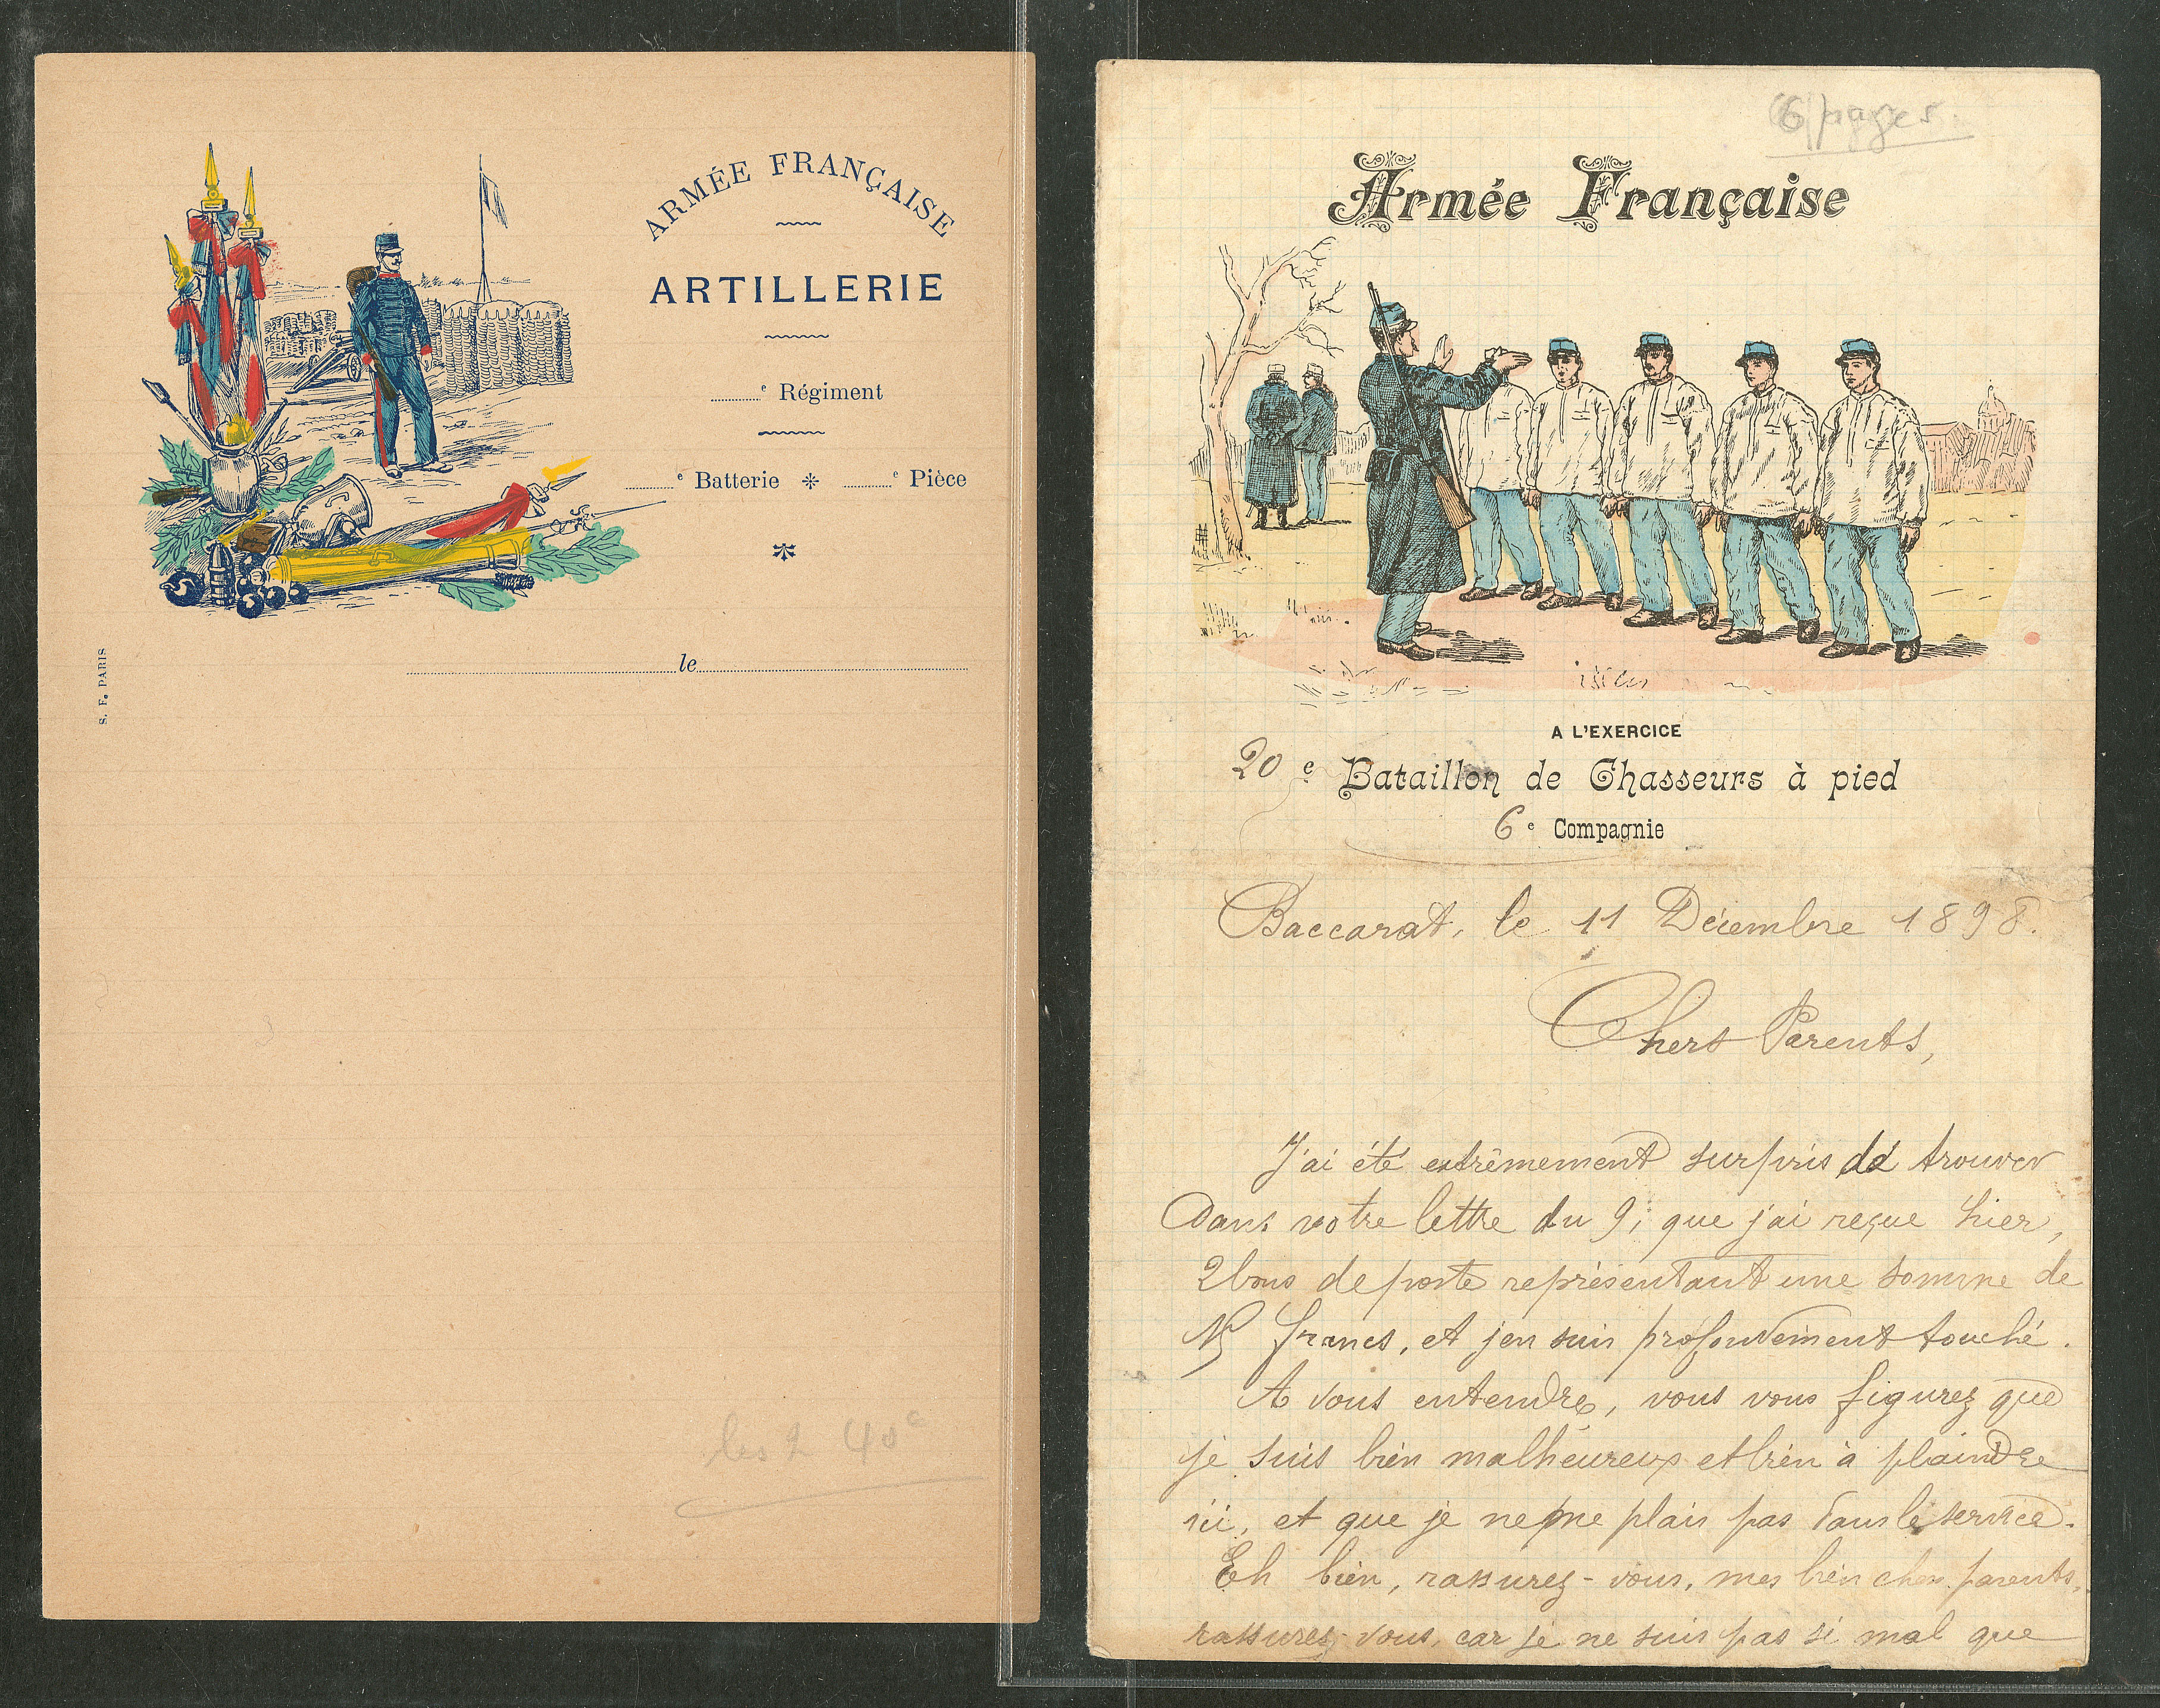 ARMÉE FRANÇAISE
ARTILLERIE
e Régiment
e Batterie * e Pièce
le
S. F. PARIS
les 2 40c
6 pages
Armée Française
A L'EXERCICE
20 e Bataillon de Chasseurs à pied
6 e Compagnie
Baccarat, le 11 Décembre 1898.
Chers Parents,
J'ai été extrêmement surpris de trouver
Dans votre lettre du 9, que j'ai reçue hier,
2 bons de poste représentant une somme de
francs, et j'en suis profondément touché.
A vous entendre, vous vous figurez que
je suis bien malheureux et bien à plaindre
ici, et que je ne me plais pas dans le service.
Eh bien, rassurez-vous, mes bien chers parents,
rassurez-vous, car je ne suis pas si mal que